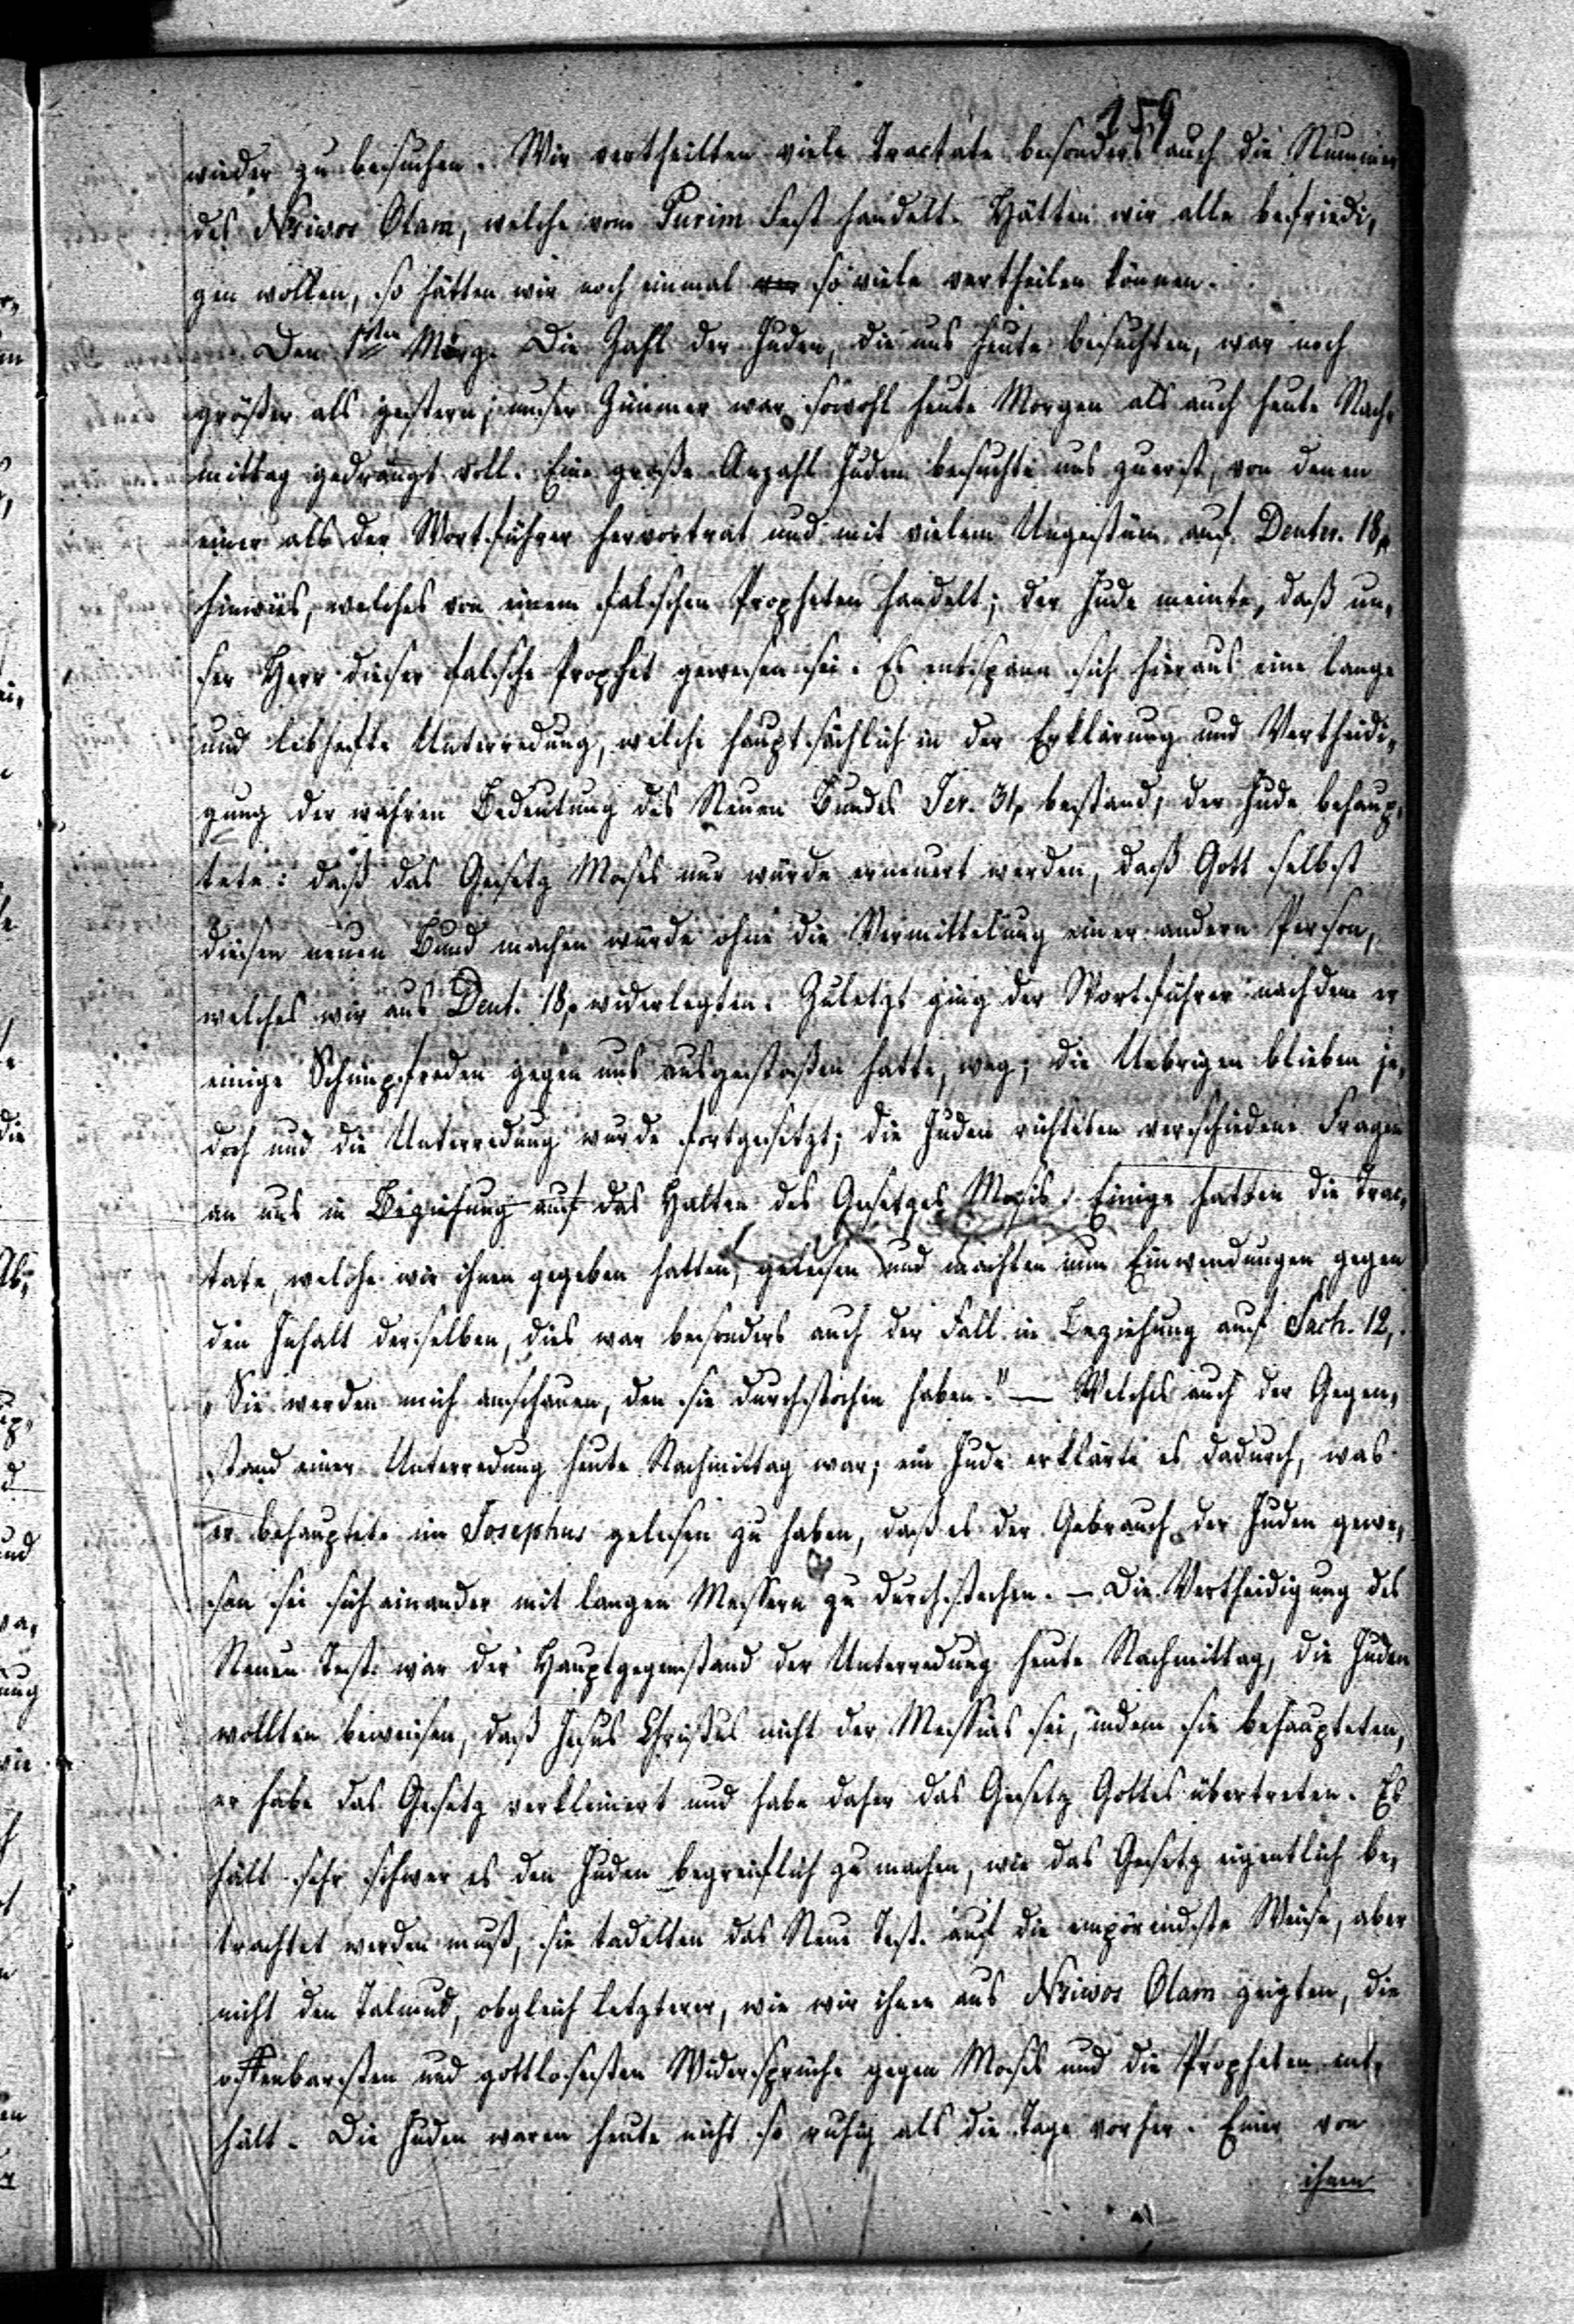 159
wieder zu besuchen. Wir vertheilten viele Tractate besonders auch die Nummer
des Nesiwos Olam, welche vom Purim Fest handelt. Hätten wir alle befriedi„
gen wollen, so hätten wir noch einmal so viele vertheilen können.
Den 1sten März. Die Zahl der Juden, die uns heute besuchten, war noch
größer als gestern; unser Zimmer war sowohl heute Morgen als auch heute Nach„
mittag gedrängt voll. Eine große Anzahl Juden besuchte uns zuerst, von denen
einer als der Wortführer hervortrat und mit vielem Ungestüm auf Deuter. 18,
hinwies, welches von einem falschen Propheten handelt; der Jude meinte, daß un„
ser Herr dieser falsche Prophet gewesen sei. Es entspann sich hieraus eine lange
und lebhafte Unterredung, welche hauptsächlich in der Erklärung und Vertheidi„
gung der wahren Bedeutung des Neuen Bundes Jer. 31, bestand; der Jude behaup„
tete: daß das Gesetz Moses nur würde erneuert werden, daß Gott selbst
diesen neuen Bund machen würde ohne die Vermittelung einer andern Person,
welches wir aus Deut. 18, widerlegten. Zuletzt ging der Wortführer nachdem er
einige Schimpfreden gegen uns ausgestoßen hatte, weg; die Uebrigen blieben je„
doch und die Unterredung wurde fortgesetzt; die Juden richteten verschiedene Fragen
an uns in Beziehung auf das Halten des Gesetzes Mosis. Einige hatten die Trac„
tate, welche wir ihnen gegeben hatten, gelesen und machten nun Einwendungen gegen
den Inhalt derselben, dies war besonders auch der Fall in Beziehung auf Sach. 12,.
„Sie werden mich anschauen, den sie durchstochen haben." — Welches auch der Gegen„
stand einer Unterredung heute Nachmittag war; ein Jude erklärte es dadurch, was
er behauptete im Josephus gelesen zu haben, daß es der Gebrauch der Juden gewe„
sen sei sich einander mit langen Messern zu durchstechen. — Die Vertheidigung des
Neuen Test. war der Hauptgegenstand der Unterredung heute Nachmittag, die Juden
wollten beweisen, daß Jesus Christus nicht der Messias sei, indem sie behaupteten,
er habe das Gesetz verkleinert und habe daher das Gesetz Gottes übertreten. Es
hält sehr schwer es den Juden begreiflich zu machen, wie das Gesetz eigentlich be„
trachtet werden muß, sie tadelten das Neue Test. auf die empörendste Weise, aber
nicht den Talmud, obgleich letzterer, wie wir ihnen aus Nesiwos Olam zeigten, die
offenbarsten und gottlosesten Widersprüche gegen Moses und die Propheten ent„
hält. Die Juden waren heute nicht so ruhig als die Tage vorher. Einer von
ihnen